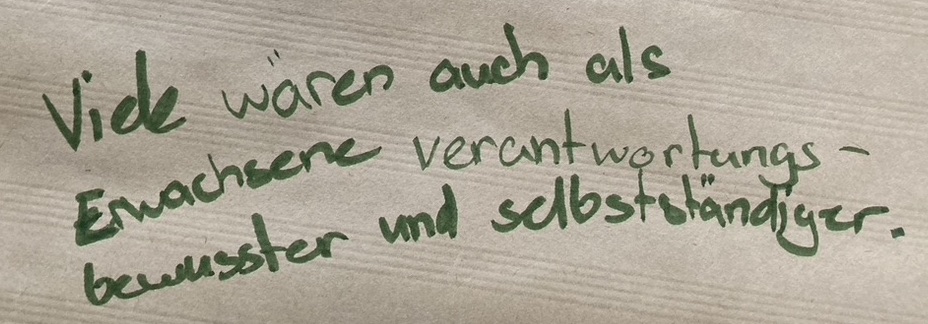 Viele wären auch als
Erwachsene verantwortungs-
bewusster und selbstständiger.